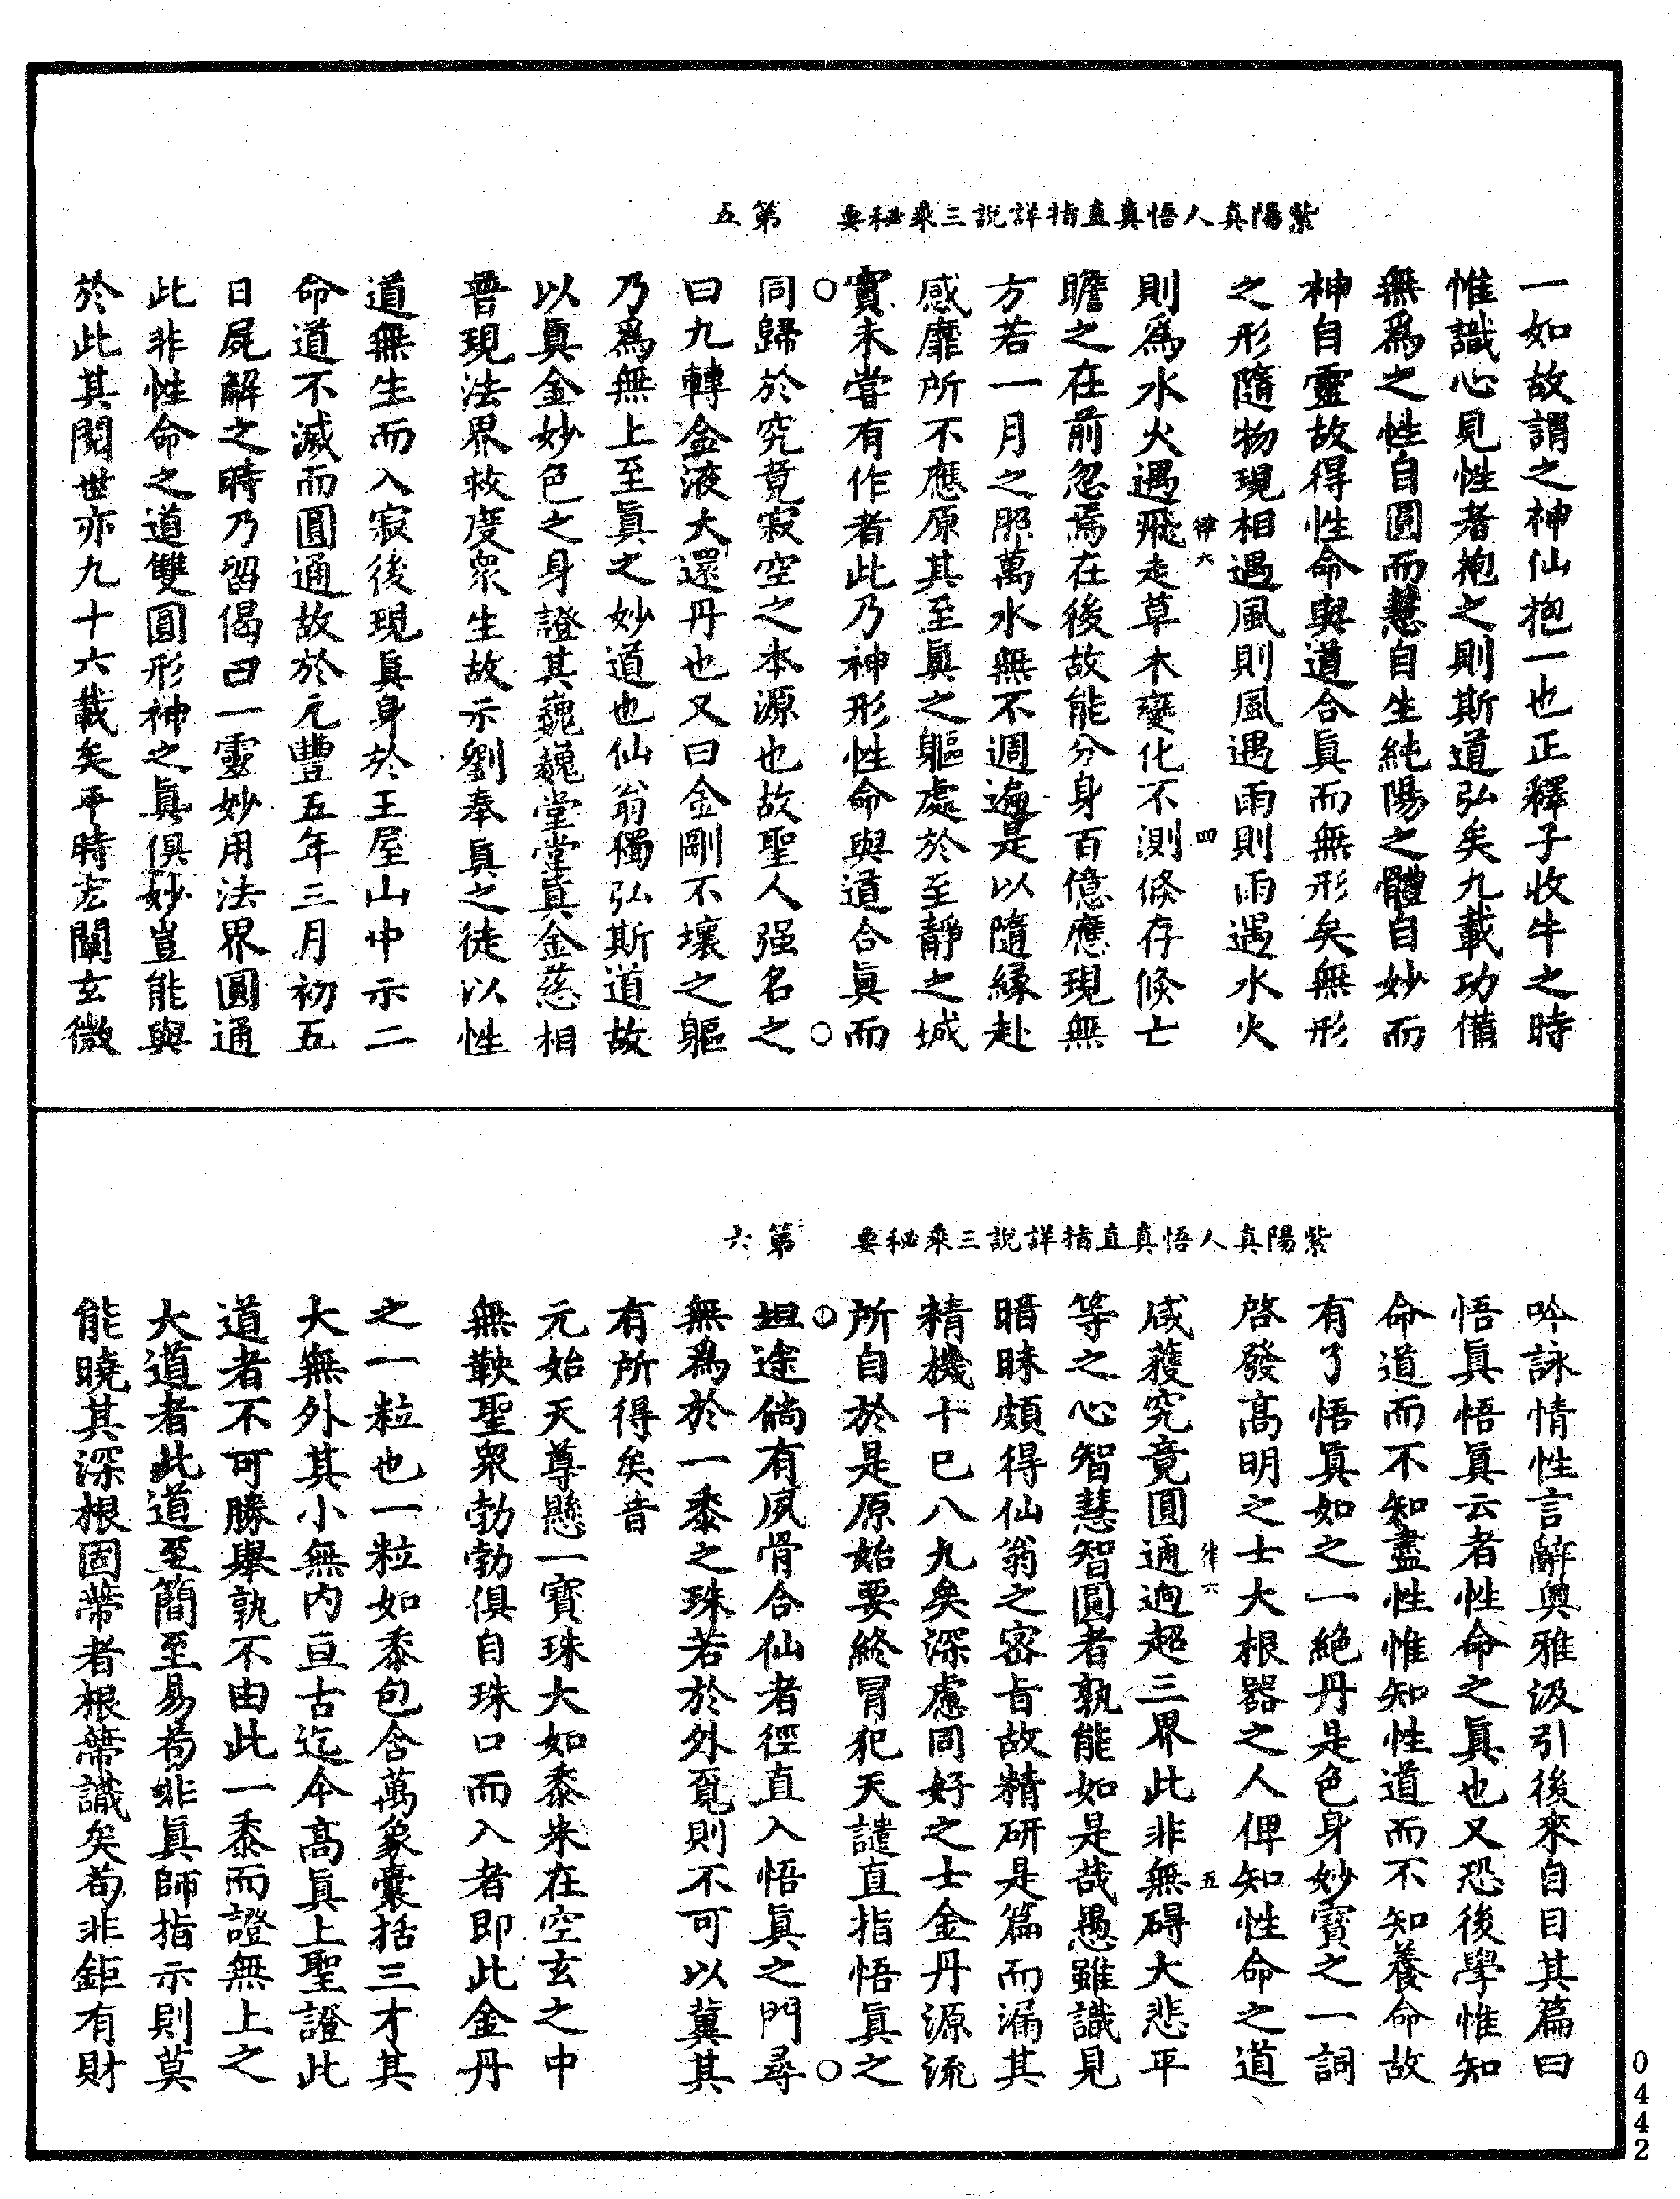 紫陽真人悟真直指詳說三乘秘要　第五
一如故謂之神仙抱一也正釋子收牛之時
惟識心見性者抱之則斯道弘矣九載功備
無爲之性自圓而慧自生純陽之體自妙而
神自靈故得性命與道合眞而無形矣無形
之形隨物現相遇風則風遇雨則雨遇水火
律六　四
則爲水火遇飛走草木變化不測倏存倏亡
瞻之在前忽焉在後故能分身百億應現無
方若一月之照萬水無不週遍是以隨緣赴
感靡所不應原其至眞之軀處於至靜之城
實未嘗有作者此乃神形性命與道合眞而
同歸於究竟寂空之本源也故聖人强名之
曰九轉金液大還丹也又曰金剛不壞之軀
乃爲無上至眞之妙道也仙翁獨弘斯道故
以眞金妙色之身證其巍巍堂堂眞金慈相
普現法界救度衆生故示劉奉眞之徒以性
道無生而入寂後現眞身於王屋山中示二
命道不滅而圓通故於元豐五年三月初五
日屍解之時乃留偈曰一靈妙用法界圓通
此非性命之道雙圓形神之眞俱妙豈能與
於此其閱世亦九十六載矣平時宏闡玄微
紫陽真人悟真直指詳說三乘秘要　第六
吟詠情性言辭奧雅汲引後來自目其篇曰
悟眞悟眞云者性命之眞也又恐後學惟知
命道而不知盡性惟知性道而不知養命故
有了悟眞如之一絕丹是色身妙寶之一詞
啓發高明之士大根器之人俾知性命之道
律六　五
咸獲究竟圓通逈超三界此非無碍大悲平
等之心智慧智圓者孰能如是哉愚雖識見
暗昧頗得仙翁之密旨故精研是篇而漏其
精機十已八九矣深慮同好之士金丹源流
所自於是原始要終冐犯天譴直指悟眞之
坦途倘有夙骨合仙者徑直入悟眞之門尋
無爲於一黍之珠若於外覓則不可以冀其
有所得矣昔
元始天尊懸一寶珠大如黍米在空玄之中
無鞅聖衆勃勃俱自珠口而入者即此金丹
之一粒也一粒如黍包含萬象囊括三才其
大無外其小無内亘古迄今高眞上聖證此
道者不可勝舉孰不由此一黍而證無上之
大道者此道至簡至易苟非眞師指示則莫
能曉其深根固蒂者根蒂識矣苟非鉅有財
0442